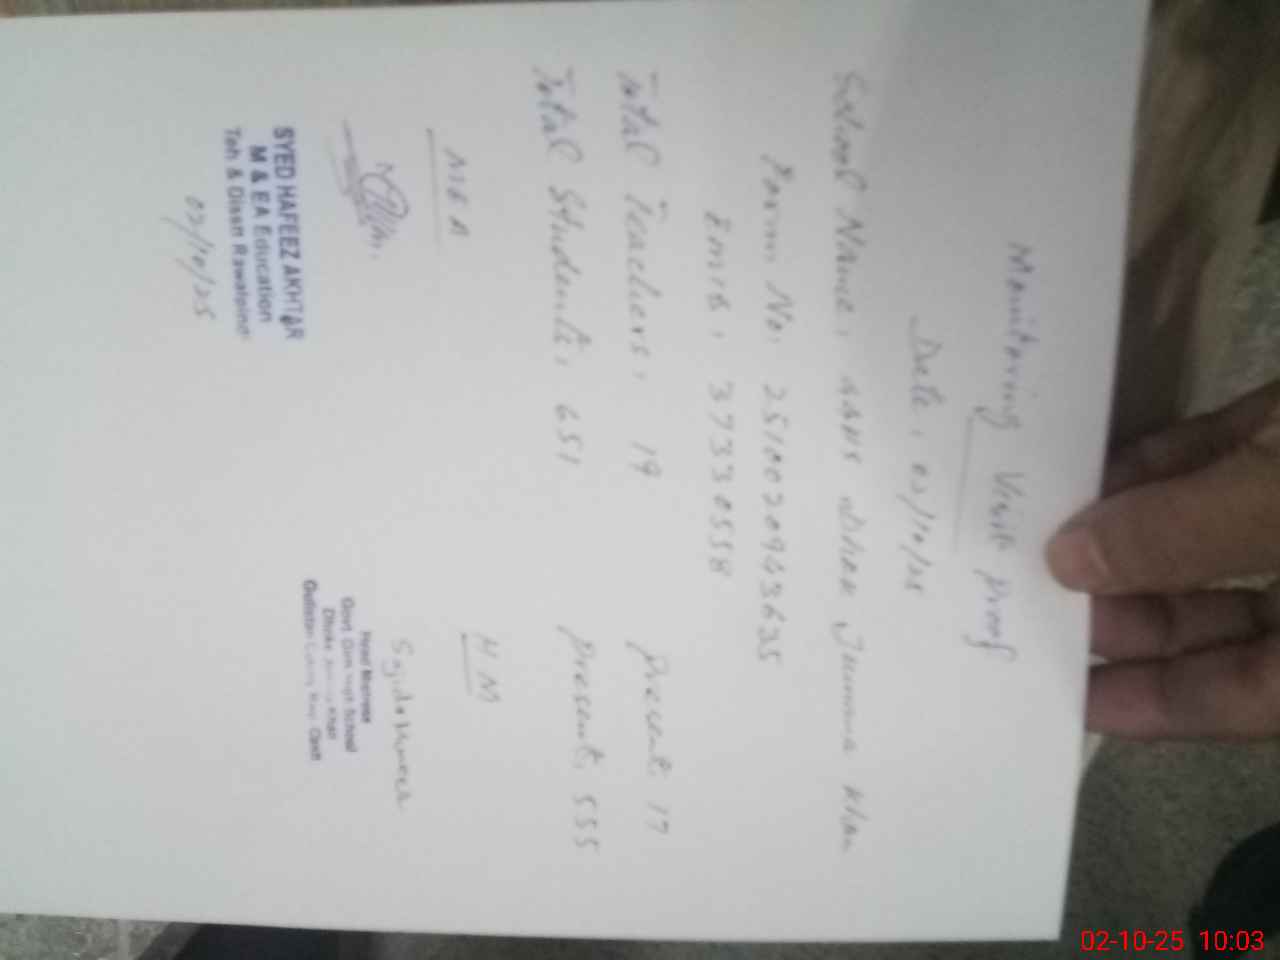 Monitoring Visit Proof
Date: 02/10/25
School Name: GGHS Dhok Jumma Khan
Form No: 2510020943635
Emis: 37330558
Total Teachers: 19 Present: 17
Total Students: 651 Present: 555
MEA
H.M
SYED HAFEEZ AKHTAR
M & EA Education
Teh & Distt Rawalpindi
02/10/25
Head Mistress
Govt. Girls High School
Khan
02-10-25 10:03